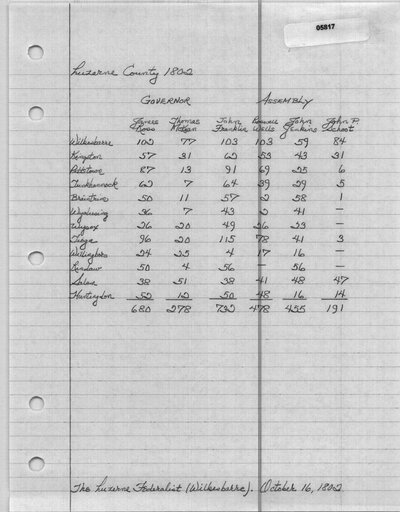 05817
Luzerne County 1802
GOVERNOR ASSEMBLY
James Thomas John Roswell John John P.
Ross McKean Franklin Wells Jenkins Schoot
Wilkesbarre 102 77 103 103 59 84
Kingston 57 31 62 53 43 31
Pittstown 87 13 91 69 25 6
Tuckhannock 62 7 64 39 29 5
Braintrim 50 11 57 2 58 1
Wyalusing 36 7 43 2 41 —
Wysox 26 20 49 26 23 —
Tioga 96 20 115 78 41 3
Willingboro 24 25 4 17 16 —
50 4 56 — 56 —
Salem 38 51 38 41 48 47
Huntingdon 52 12 50 48 16 14
680 278 732 478 455 191
The Luzerne Federalist (Wilkesbarre). October 16, 1802.